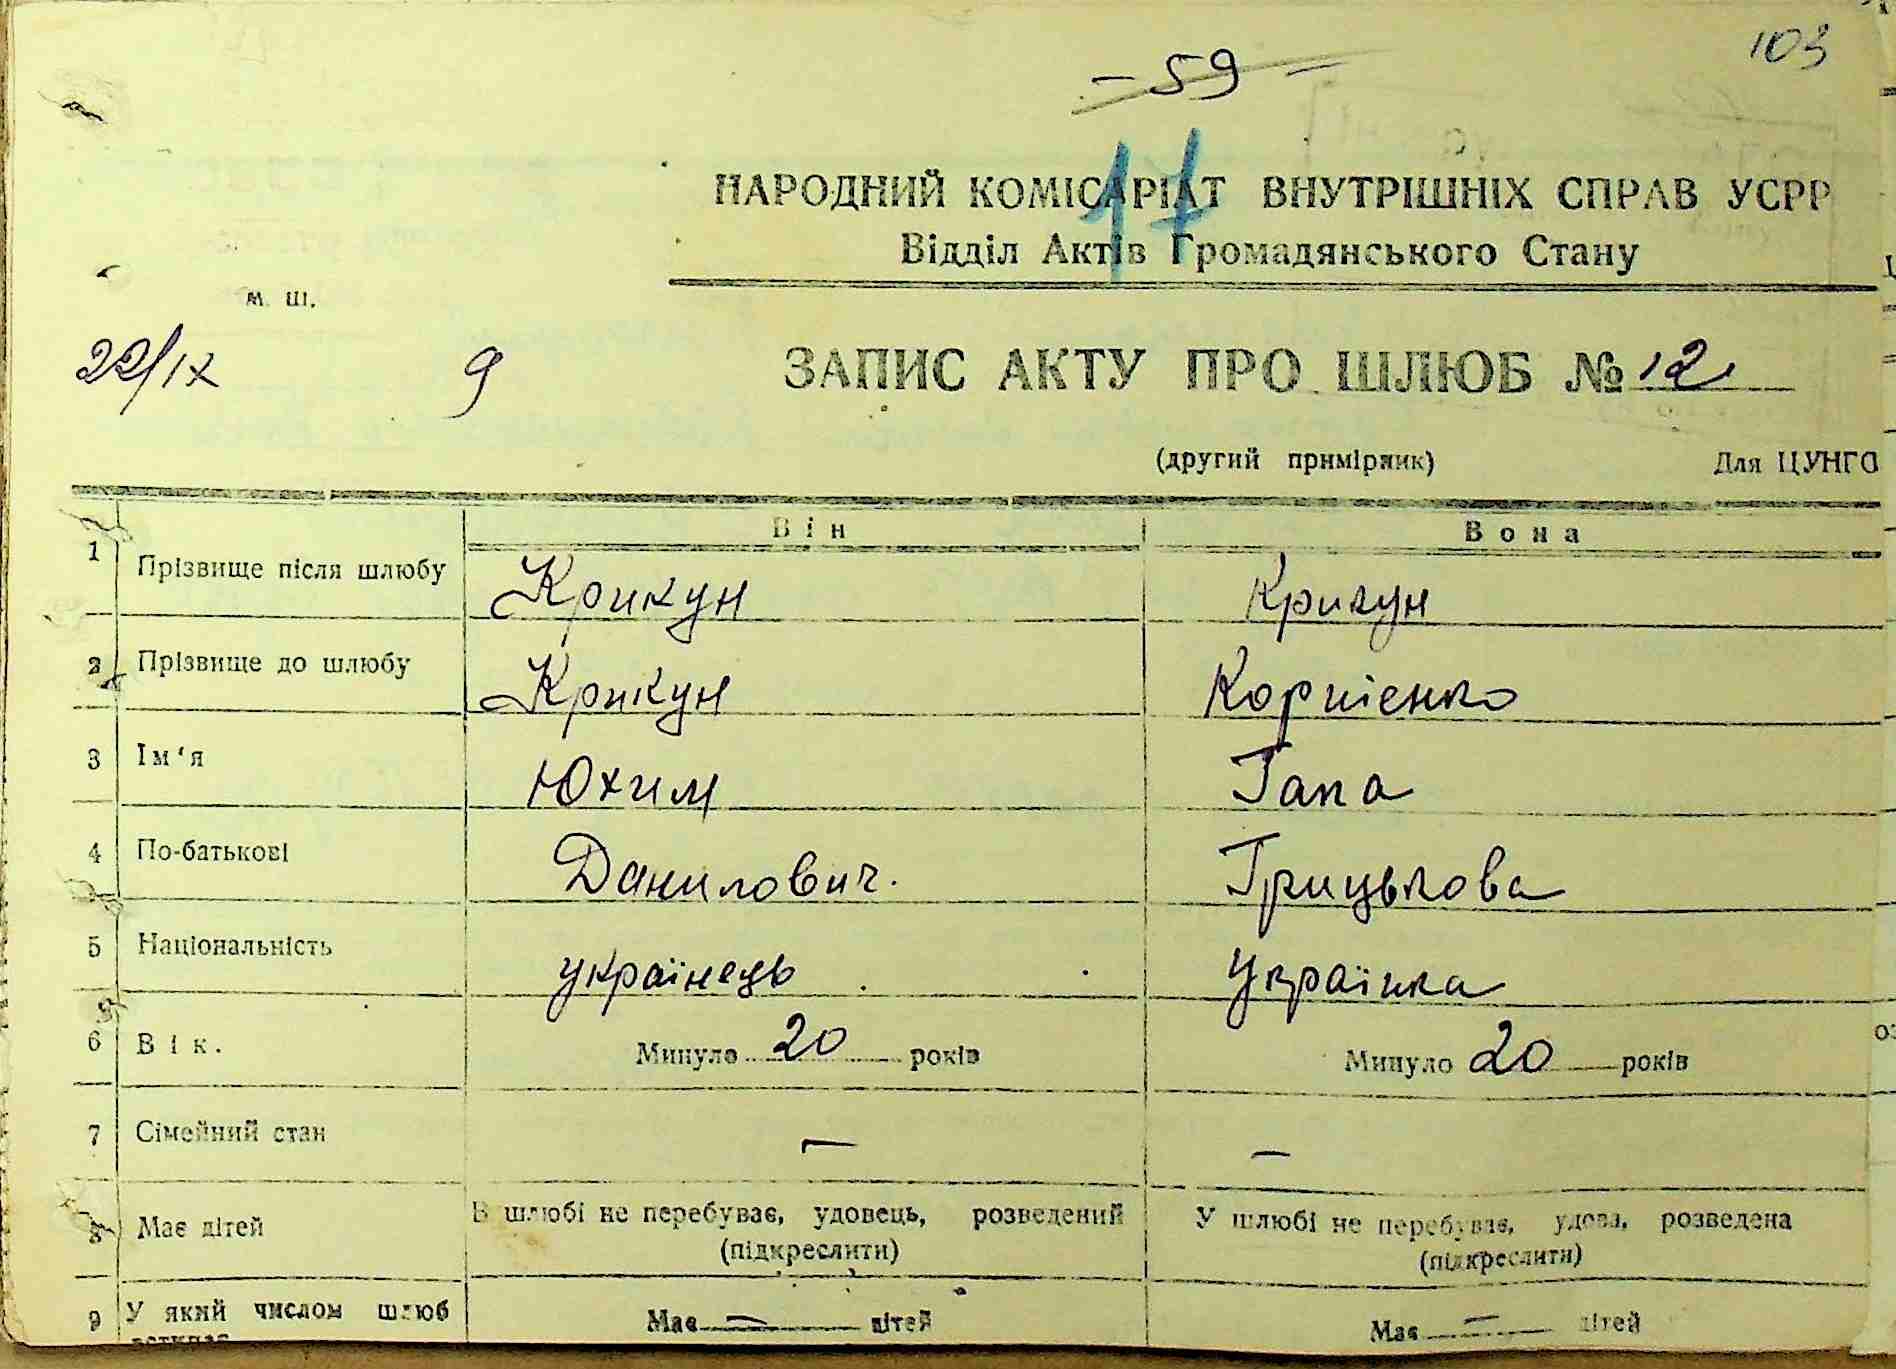 103
- 59 -
17
НАРОДНИЙ КОМІСАРІАТ ВНУТРІШНІХ СПРАВ УСРР
Відділ Актів Громадянського Стану
м. ш.
22/IX 9
ЗАПИС АКТУ ПРО ШЛЮБ № 12
(другий примірник) Для ЦУНГО
Він Вона
1 Прізвище після шлюбу Крикун Крикун
2 Прізвище до шлюбу Крикун Корнієнко
3 Ім‘я Юхим Гапа
4 По-батькові Данилович. Грицькова
5 Національність українець українка
6 Вік. Минуло 20 років Минуло 20 років
7 Сімейний стан — —
8 Має дітей В шлюбі не перебуває, удовець, розведений У шлюбі не перебуває, удова, розведена
(підкреслити) (підкреслити)
9 У який числом шлюб Має — дітей Має — дітей